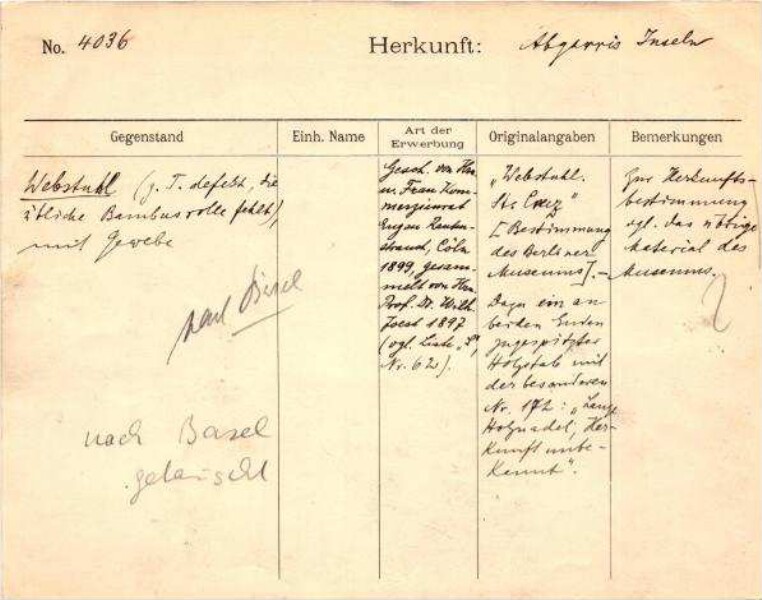 No. 4036 Herkunft: Abgarris Inseln
Gegenstand
Einh. Name
Art der
Erwerbung
Originalangaben
Bemerkungen
Webstuhl (z. T. defekt, die
übliche Bambusrolle fehlt),
mit Gewebe
nach Basel
nach Basel
getauscht
Gesch. von Hrn.
u. Frau Kom-
merzienrat
Eugen Rauten-
strauch, Cöln
1899, gesam-
melt von Hrn.
Prof. Dr. Wilh.
Joest 1897
(vgl. Liste „S",
Nr. 62).
„Webstuhl.
St. Cruz"
[Bestimmung
des Berliner
Museums]. —
Dazu ein an
beiden Enden
zugespitzter
Holzstab mit
der besonderen
Nr. 172: „Lange
Holznadel, Her-
kunft unbe-
kannt".
Zur Herkunfts-
bestimmung
vgl. das übrige
Material des
Museums.
?